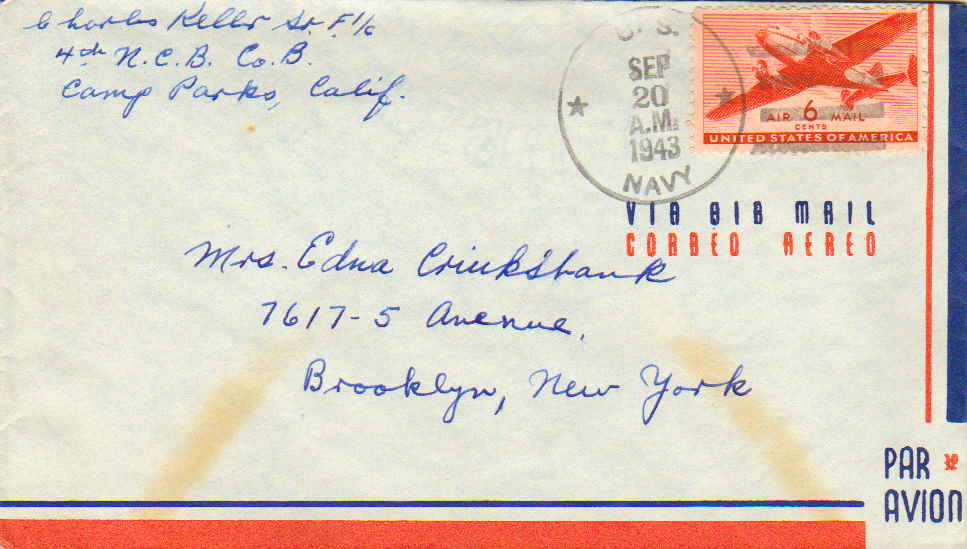 Charles Keller Sr. F 1/c
4th N.C.B. Co. B.
Camp Parks, Calif.
U. S.
SEP
20
A.M.
1943
NAVY
AIR 6 MAIL
CENTS
UNITED STATES OF AMERICA
VIA AIR MAIL
CORREO AEREO
Mrs. Edna Cruikshank
7617-5 Avenue,
Brooklyn, New York
PAR
AVION